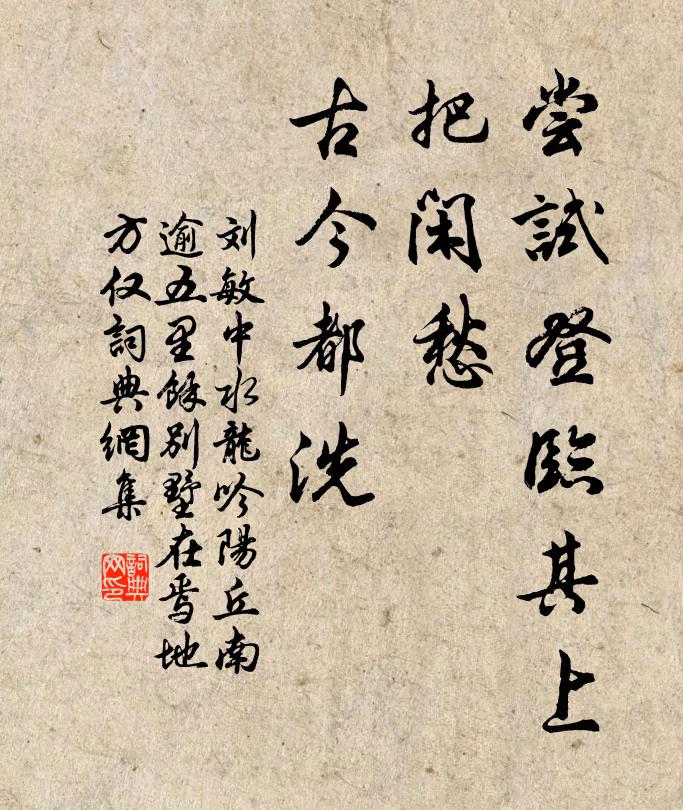 尝試登臨其上
把閑愁
古今都洗
刘敏中水龍吟陽丘南
逾五里餘别墅在焉地
方仅詞典網集
詞典网印